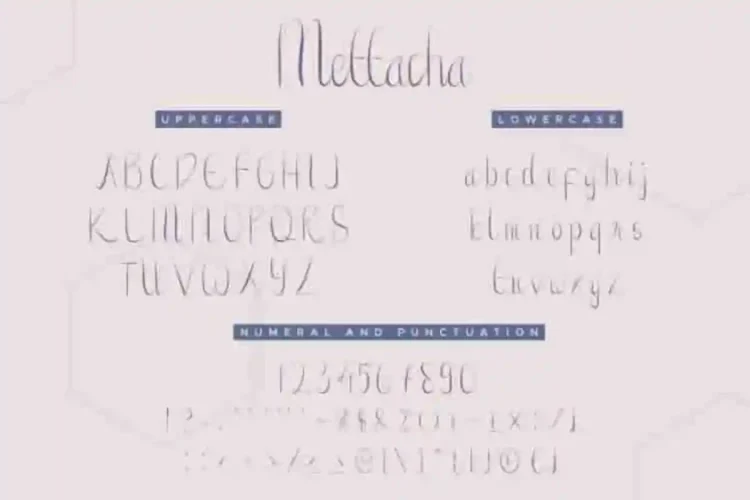 Mettacha
UPPERCASE
ABCDEFGHIJ
KLMNOPQRS
TUVWXYZ
LOWERCASE
abcdefghij
klmnopqrs
tuvwxyz
NUMERAL AND PUNCTUATION
1234567890